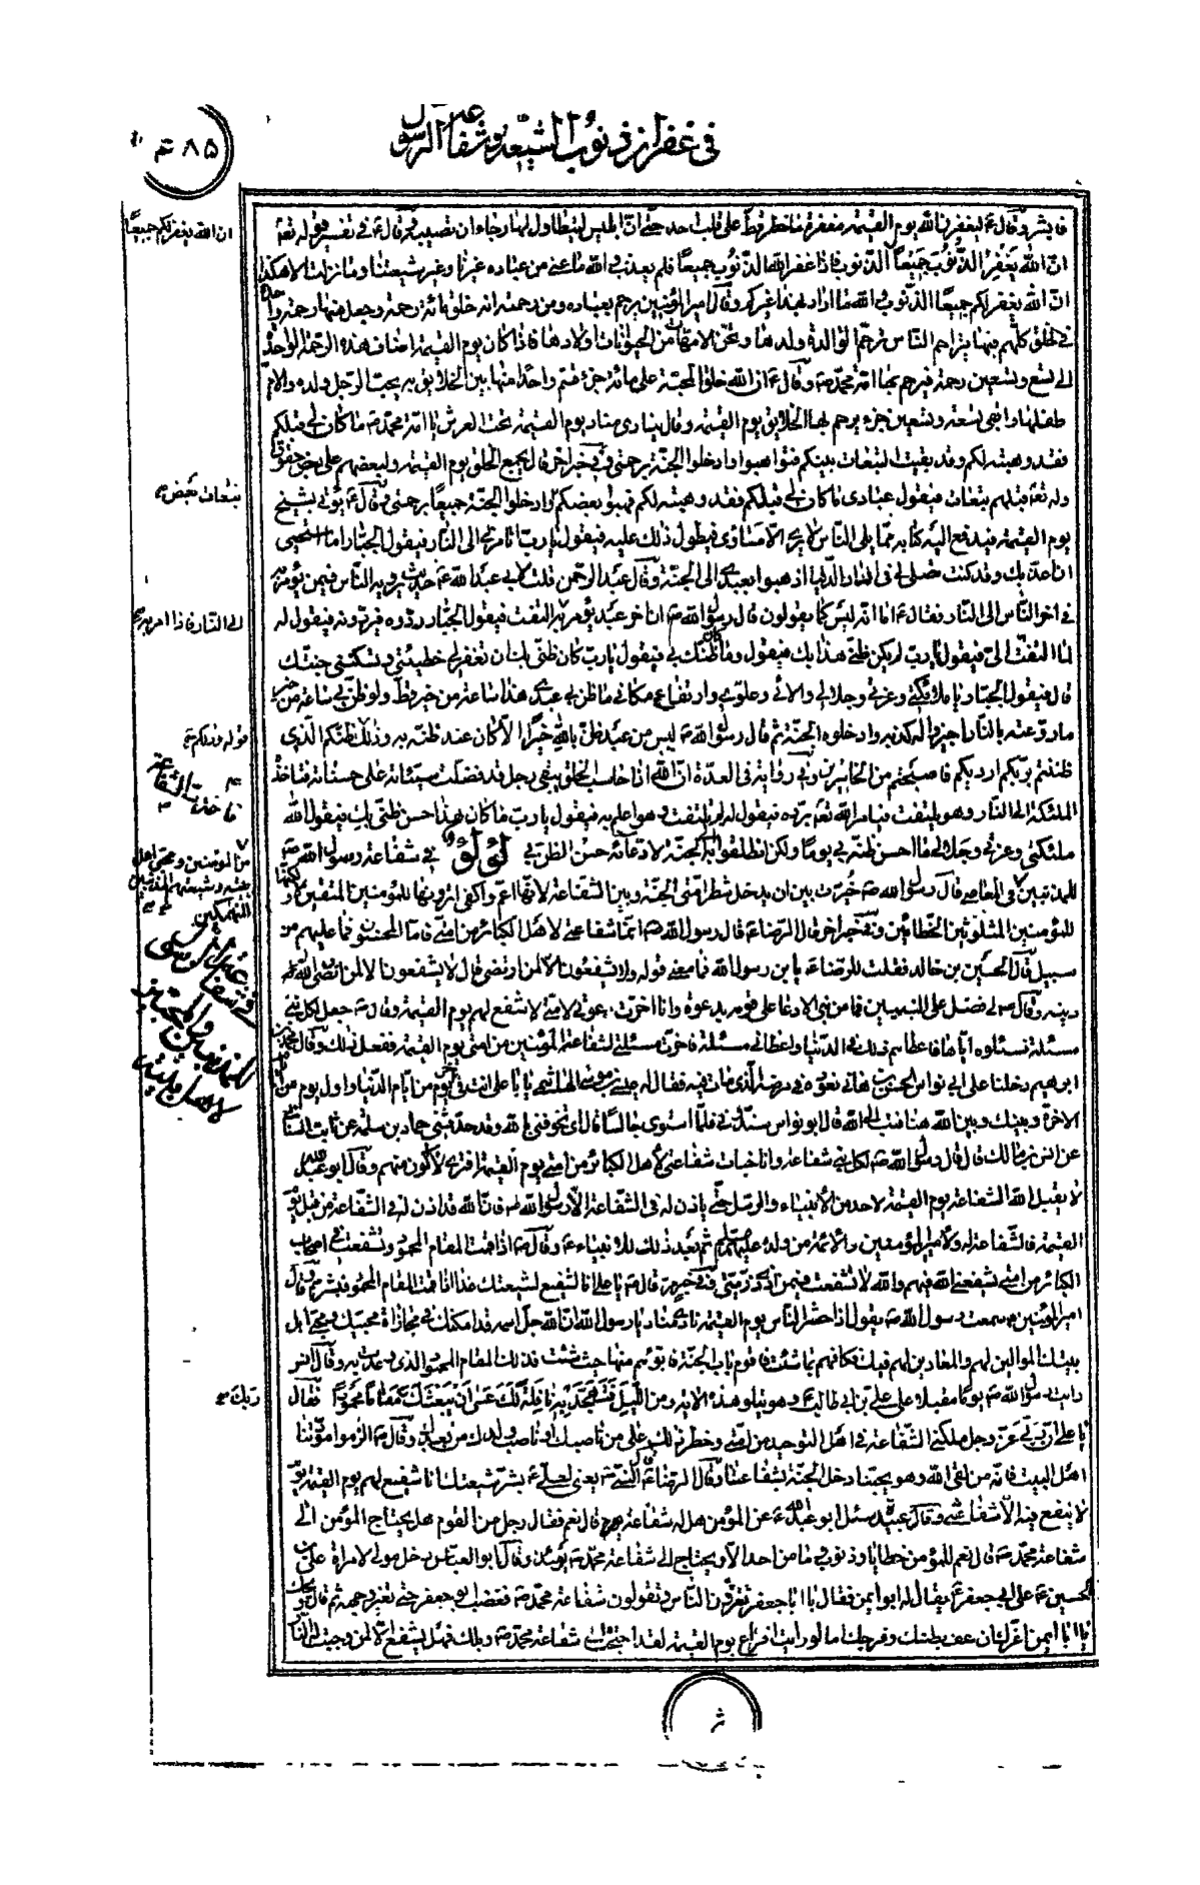 في غفران ذنوب الشيعة وشفاعة الرسول
٤٨٥
فابشروا وقال ع ليغفرن الله يوم القيمة مغفرة ما خطر قط على قلب احد حتى ان ابليس ليتطاول لها رجاء ان تصيبه وقال ع في تفسير قوله تعم
ان الله يغفر الذنوب جميعا الذنوب فاذا غفر الله الذنوب جميعا فلم يعذب والله ما عنى من عباده غيرنا وغير شيعتنا وما نزلت الا هكذا
ان الله يغفر لكم جميعا الذنوب والله ما اراد بهذا غيركم وقال امير المؤمنين رحيم بعباده ومن رحمته انه خلق مائة رحمة وجعل منها رحمة واحدة
في الخلق كلهم فبها يتراحم الناس وترحم الوالدة ولدها وتحنن الامهات من الحيوانات اولادها فاذا كان يوم القيمة اضاف هذه الرحمة الواحدة
الى تسع وتسعين رحمة فيرحم بها امة محمد ص وقال ع ان الله خلق المحبة على مائة جزء قسم واحدا منها بين الخلايق به يحب الرجل ولده والام
طفلها وابقى تسعة وتسعين جزء يرحم بها الخلايق يوم القيمة وقال ينادى مناد يوم القيمة تحت العرش يا امة محمد ص ما كان لي قبلكم
فقد وهبته لكم وقد بقيت التبعات بينكم فتواهبوا وادخلوا الجنة برحمتي وفي خبر اخر قال يجمع الخلق يوم القيمة ولبعضهم على بعض حقوق
وله تعم قبلهم تبعات فيقول عبادى ما كان لي قبلكم فقد وهبته لكم فهبوا بعضكم وادخلوا الجنة جميعا برحمتي وقال ع يؤتى بشيخ
يوم القيمة فيدفع اليه كتابه مما يلى الناس لا يرى الا مساوى فيطول ذلك عليه فيقول يا رب اتامر بي الى النار فيقول الجبار اما استحيى
ان اعذبك وقد كنت تصلى لي في الدار الدنيا اذهبوا بعبدي الى الجنة وقال عبد الرحمن قلت لابي عبد الله ع حديث يرويه الناس فيمن يؤمر به
في اخر الناس الى النار فقال ع اما انه ليس كما يقولون قال رسول الله ص ان اخر عبد يؤمر به التفت فيقول الجبار ردوه فيردونه فيقول له
لما التفت الى فيقول يا رب لم يكن ظني هذا بك فيقول وما كان ظنك بي فيقول يا رب كان ظني بك ان تغفر لي خطيئتي وتسكنني جنتك
قال فيقول الجبار يا ملائكتي وعزتي وجلالي والائي وعلوي وارتفاع مكاني ما ظن بي عبدي هذا ساعة من خير قط ولو ظن بي ساعة من خير
ما روعته بالنار اجيزوا له كذبه وادخلوه الجنة ثم قال رسول الله ص ليس من عبد ظن بالله خيرا الا كان عند ظنه به وذلك ظنكم الذى
ظننتم بربكم ارديكم فاصبحتم من الخاسرين وفي رواية في العدة ان الله اذا حاسب الخلق يبقى رجل قد فضلت سيئاته على حسناته فتاخذه
الملئكة الى النار وهو يلتفت فيامر الله تعم برده فيقول له لم تلتفت وهو اعلم به فيقول يا رب ما كان هذا حسن ظني بك فيقول الله
ملئكتي وعزتي وجلالي ما احسن ظنه بي يوما ولكن انطلقوا به الى الجنة لادعائه حسن الظن بي لؤلؤ في شفاعة رسول الله ص
للمذنبين في المعاصي قال رسول الله ص خيرت بين ان يدخل شطر امتي الجنة وبين الشفاعة لانها اعم واكفى اترونها للمؤمنين المتقين لا ولكنها
للمؤمنين المتلوثين الخطائين وفي خبر اخر قال الرضا ع قال رسول الله ص انما شفاعتي لاهل الكبائر من امتي فاما المحسنون فما عليهم من
سبيل قال الحسين بن خالد فقلت للرضا ع يا بن رسول الله فما معنى قوله ولا يشفعون الا لمن ارتضى قال لا يشفعون الا لمن ارتضى الله
دينه وقال ص لي فضل على النبيين فما من نبي الا دعا على قومه بدعوة وانا اخرت دعوتي لامتي لاشفع لهم يوم القيمة وقال ص جعل لكل نبي
مسئلة فسئلوه اياها فاعطاهم ذلك في الدنيا واعطاني مسئلة فاخرت مسئلتي لشفاعة المؤمنين من امتي يوم القيمة ففعل ذلك وقال محمد بن
ابرهيم دخلنا على ابي نواس الحسن بن هاني نعوده في مرضه الذى مات فيه فقال له عيسى بن موسى الهاشمي يا با على انت في اخر يوم من ايام الدنيا واول يوم من ايام
الاخرة وبينك وبين الله هنات فتب الى الله قال ابو نواس سندوني فلما استوى جالسا قال اياى تخوفني بالله وقد حدثني حماد بن سلمة عن ثابت البناني
عن انس بن مالك قال قال رسول الله ص لكل نبي شفاعة وانا خبات شفاعتي لاهل الكبائر من امتي يوم القيمة افترى لا اكون منهم وقال ابو عبد الله
لا يقبل الله الشفاعة يوم القيمة لاحد من الانبياء والرسل حتى ياذن له في الشفاعة الا رسول الله ص فان الله قد اذن له في الشفاعة من قبل يوم
القيمة فالشفاعة له ولامير المؤمنين والائمة من ولده عليهم السلام ثم بعد ذلك للانبياء ع وقال ص اذا قمت المقام المحمود تشفعت في اصحاب
الكبائر من امتي فيشفعني الله فيهم والله لا تشفعت فيمن اذى ذريتي وفي خبر قال ص يا على انا الشفيع لشيعتك غدا اذا قمت المقام المحمود فبشرهم وقال
امير المؤمنين ع سمعت رسول الله ص يقول اذا حشر الناس يوم القيمة نادى مناد يا رسول الله ان الله جل اسمه قد امكنك في مجازاة محبيك ومحبى اهل
بيتك الموالين لهم والمعادين لهم فيك فكافهم بما شئت فاقول يا رب الجنة فابوئهم منها حيث شئت فذلك المقام المحمود الذى وعدت به وقال انس
رايت رسول الله ص يوما مقبلا على على بن ابي طالب ع وهو يتلو هذه الاية ومن الليل فتهجد به نافلة لك عسى ان يبعثك مقاما محمودا فقال
يا على ان ربي عز وجل ملكني الشفاعة في اهل التوحيد من امتي وحظر ذلك على من ناصبك او ناصب ولدك من بعدك وقال ص الزموا مودتنا
اهل البيت فانه من لقى الله وهو يحبنا دخل الجنة بشفاعتنا وقال الرضا ع قال النبي ص يعني لعلى ع بشر شيعتك انا شفيع لهم يوم القيمة يوم
لا ينفع فيه الا شفاعتي وقال عبيد سئل ابو عبد الله ع عن المؤمن هل له شفاعة قال نعم فقال رجل من القوم هل يحتاج المؤمن الى
شفاعة محمد ص قال نعم للمؤمن خطايا وذنوب وما من احد الا ويحتاج الى شفاعة محمد ص يومئذ وقال ابو العباس دخل مولى لامراة على بن
الحسين ع على ابي جعفر ع يقال له ابو ايمن فقال يا ابا جعفر تغرون الناس وتقولون شفاعة محمد ص فغضب ابو جعفر حتى تغير وجهه ثم قال ويحك
يا ابا ايمن اغرك ان عف بطنك وفرجك اما لو رايت افزاع يوم القيمة لقد احتجت الى شفاعة محمد ص ويلك فهل يشفع الا لمن وجبت له النار
ان الله يغفر لكم جميعا
تبعات بعض
الى النار فاذا امر به
قوله وذلكم
فاخترت الشفاعة
من المؤمنين ومحبى اهل
بيته وشيعتهم المذنبين
ربك